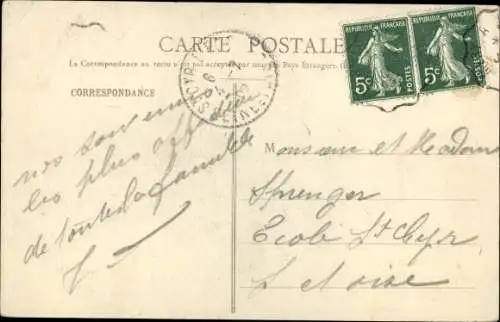 CARTE POSTALE
La Correspondance au recto n'est pas acceptée par tous les Pays Étrangers.
CORRESPONDANCE
RÉPUBLIQUE FRANÇAISE
5c
POSTES
RÉPUBLIQUE FRANÇAISE
5c
POSTES
nos souvenirs
les plus affectueux
de toute la famille
Monsieur et Madame
Sprenger
Ecole St Cyr
S et Oise